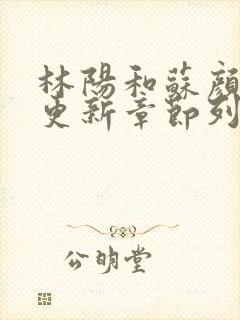 林陽和蘇顏
更新章節列
公明堂